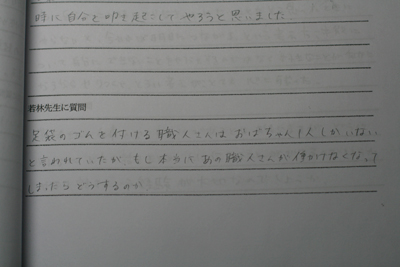 時に自分で叩き起こしてやろうと思いました
若林先生に質問
足袋のゴムを付ける職人さんはおばちゃん1人しかいない
と言われていたが、もし本当にあの職人さんが働けなくなって
しまったらどうするのか